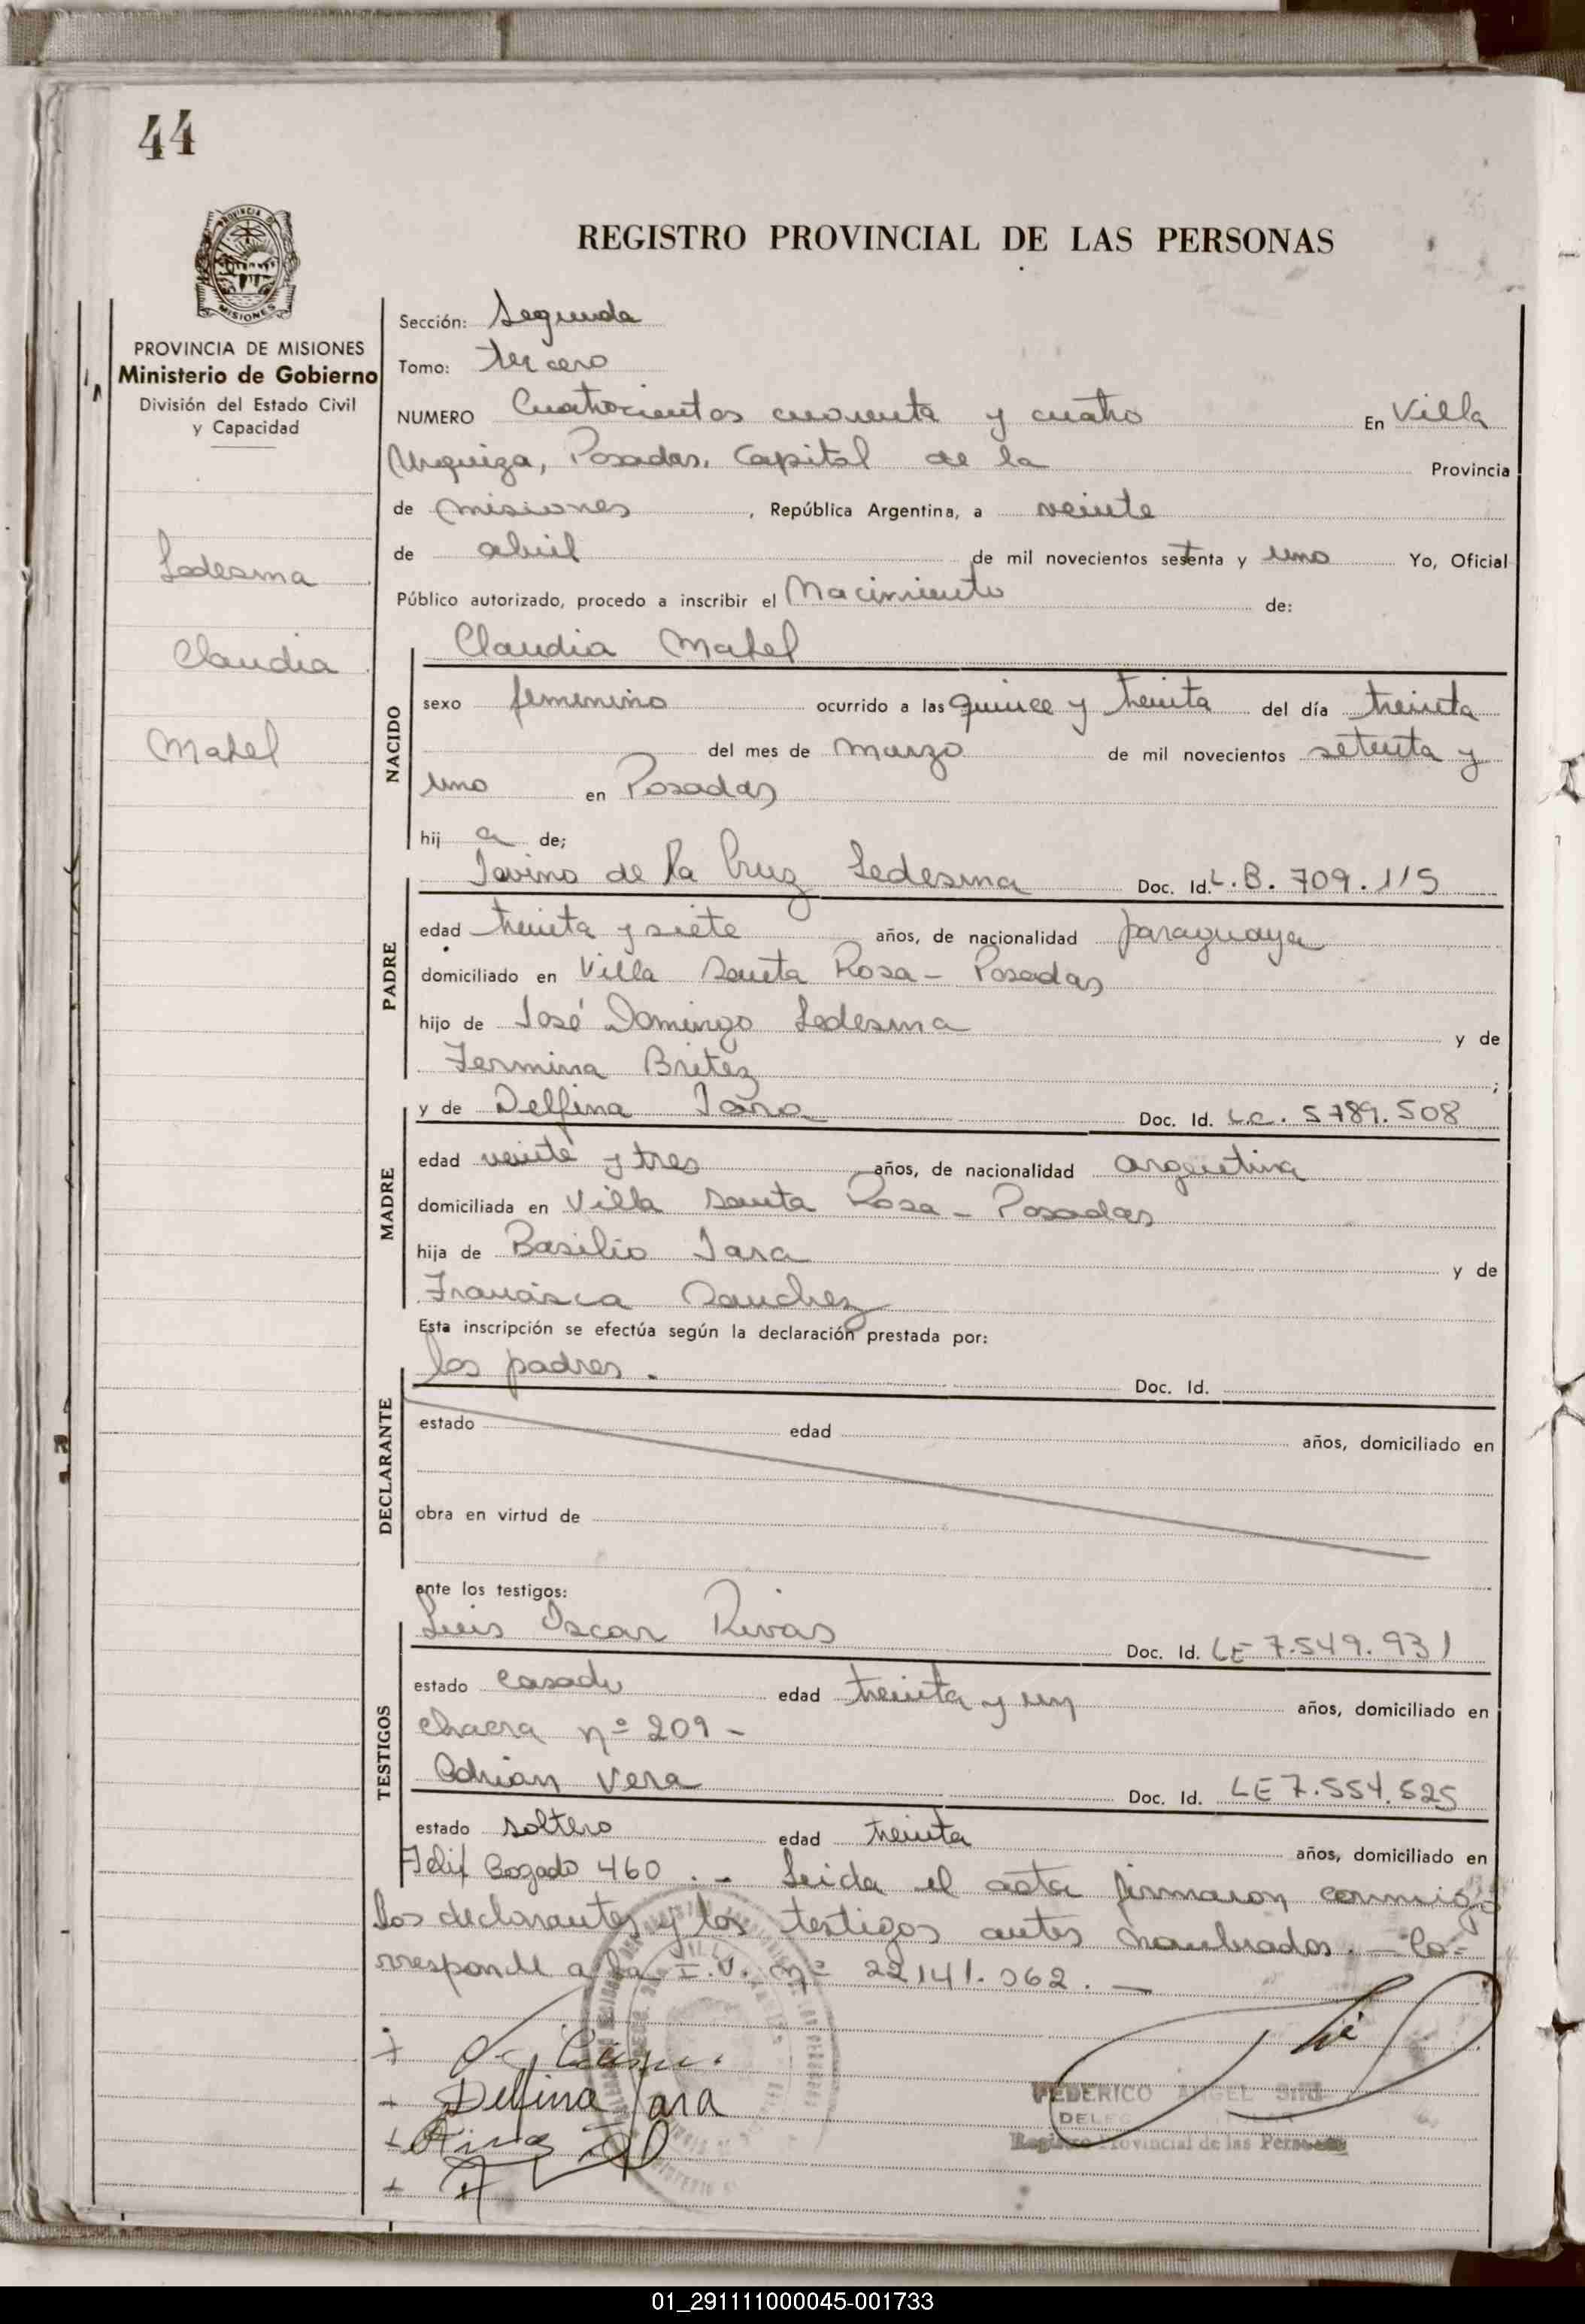 44
REGISTRO PROVINCIAL DE LAS PERSONAS
PROVINCIA DE
MISIONES
PROVINCIA DE MISIONES
Ministerio de Gobierno
División del Estado Civil
y Capacidad
Ledesma
Claudia
Mabel
Sección: Segunda
Tomo: tercero
NUMERO Cuatrocientos cuarenta y cuatro En Villa
Urquiza, Posadas, Capital de la Provincia
de Misiones, República Argentina, a veinte
de abril de mil novecientos setenta y uno Yo, Oficial
Público autorizado, procedo a inscribir el Nacimiento de:
Claudia Mabel
NACIDO
sexo femenino ocurrido a las quince y treinta del día treinta
del mes de Marzo de mil novecientos setenta y
uno en Posadas
hij a de;
Jovino de la Cruz Ledesma Doc. Id. L.B. 709.115
PADRE
edad treinta y siete años, de nacionalidad paraguaya
domiciliado en Villa Santa Rosa - Posadas
hijo de José Domingo Ledesma y de
Fermina Britez ;
y de Delfina Jara Doc. Id. L.C. 5789.508
MADRE
edad veinte y tres años, de nacionalidad argentina
domiciliada en Villa Santa Rosa - Posadas
hija de Basilio Jara y de
Francisca Sanchez
Esta inscripción se efectúa según la declaración prestada por:
los padres. Doc. Id.
DECLARANTE
estado edad años, domiciliado en
obra en virtud de
ante los testigos:
Luis Oscar Rivas Doc. Id. LE 7.549.931
TESTIGOS
estado casado edad treinta y un años, domiciliado en
chacra nº 209 -
Adrián Vera Doc. Id. LE 7.554.525
estado soltero edad treinta años, domiciliado en
Felix Bogado 460 . - Leida el acta firmaron conmigo
los declarantes y los testigos antes nombrados. - Co=
rresponde a la I.V. nº 22141.062. -
Delfina Jara
FEDERICO ANGEL
Registro Provincial de las Personas
01_291111000045-001733